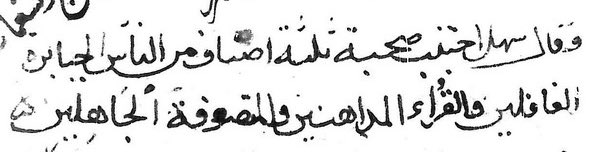 وقال سهل اجتنب صحبة ثلثة اصناف من الناس الجبابرة
الغافلين والقُرّاء المداهنين والمتصوفة الجاهلين